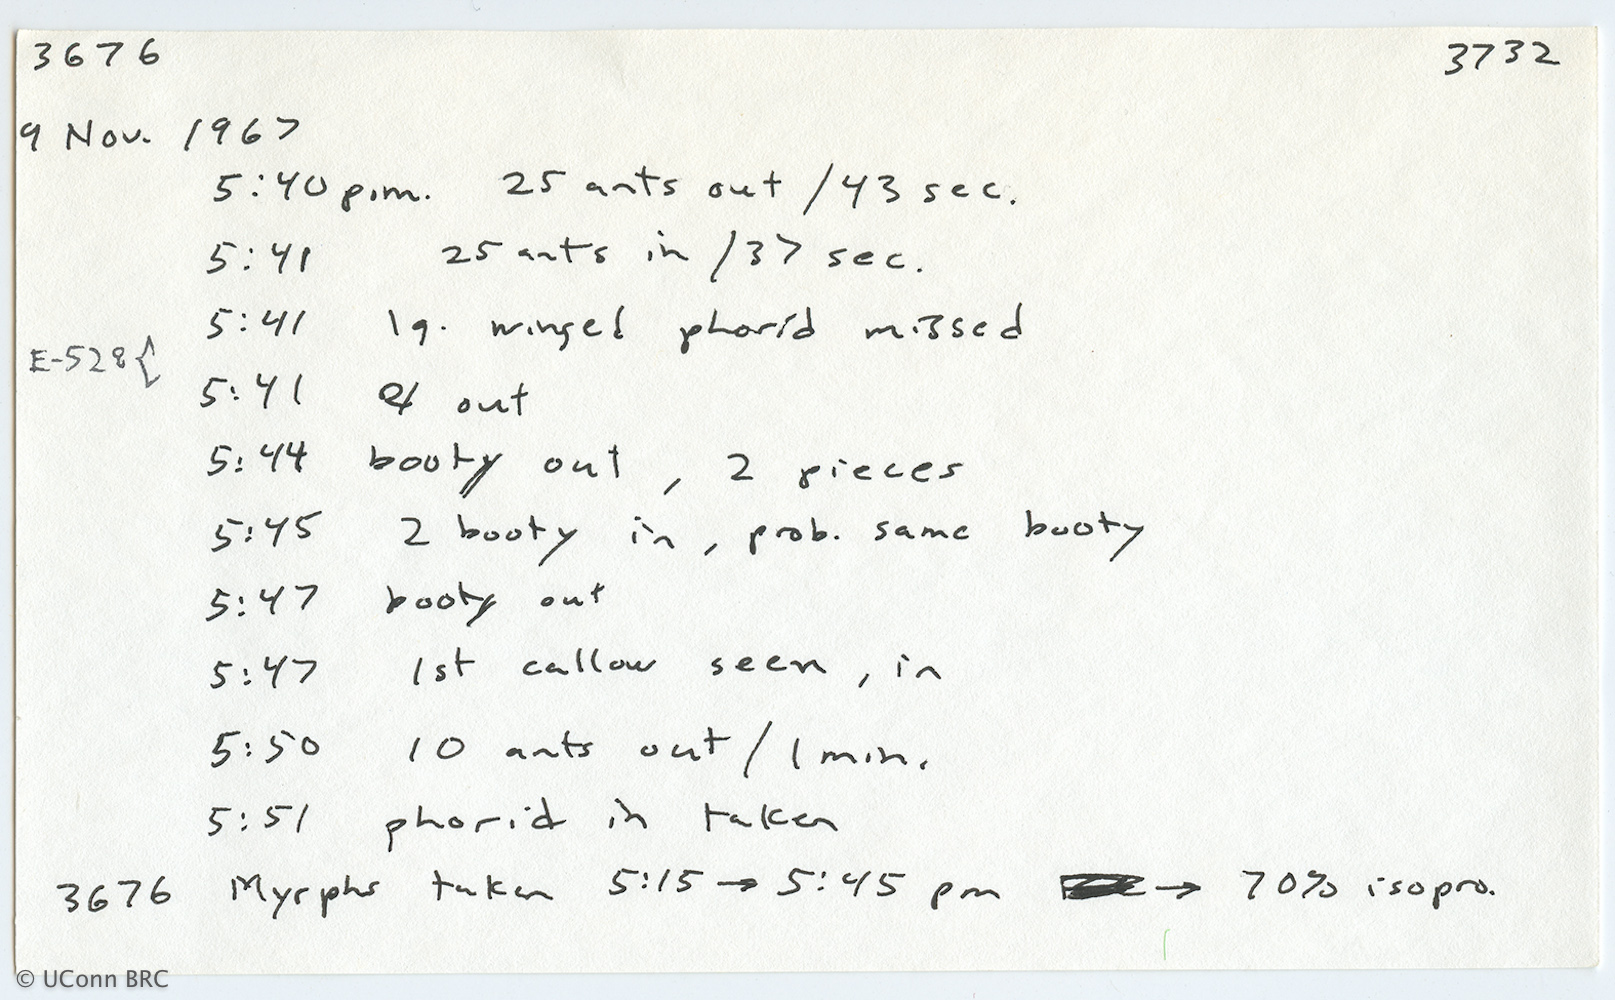 3676 3732
9 Nov. 1967
5:40 p.m. 25 ants out /43 sec.
5:41 25 ants in /37 sec.
5:41 lg. winged phorid missed
E-528 {
5:41 out
5:44 booty out, 2 pieces
5:45 2 booty in, prob. same booty
5:47 booty out
5:47 1st callow seen, in
5:50 10 ants out / 1 min.
5:51 phorid in taken
3676 Myrphs taken 5:15 → 5:45 pm → 70% isopro.
© UConn BRC